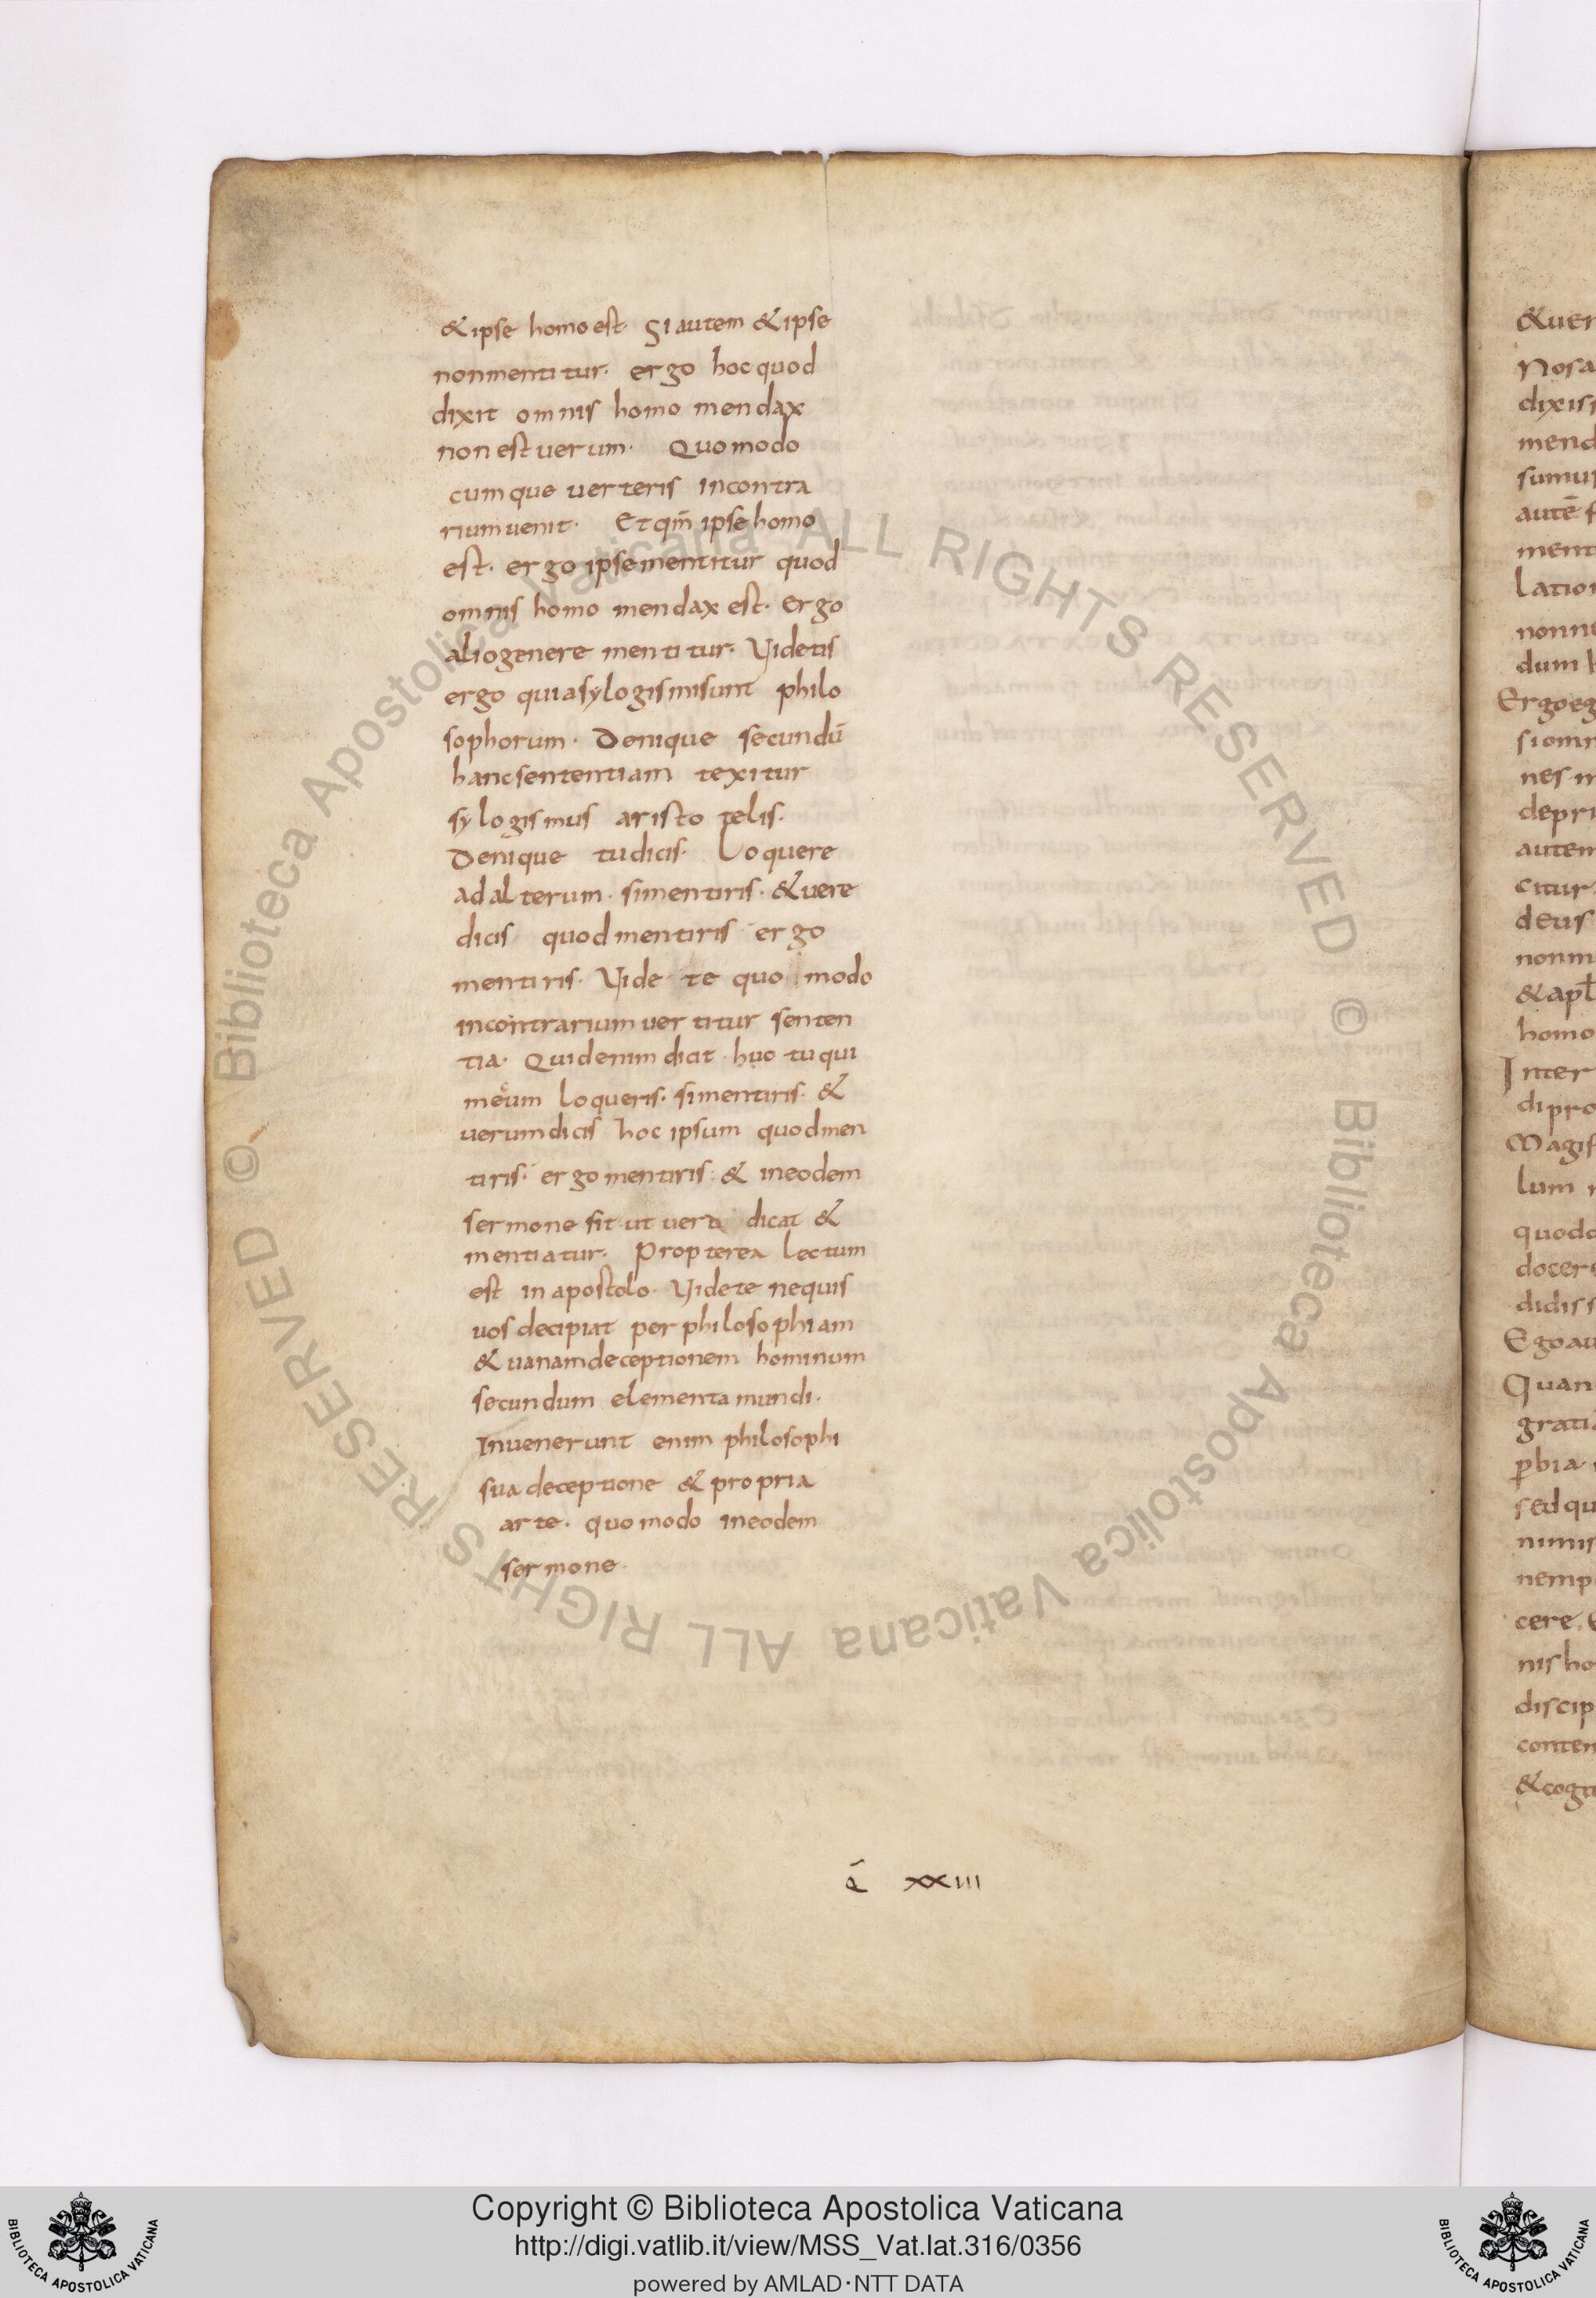 & ipse homo est. Si autem & ipse
non mentitur. ergo hoc quod
dixit omnis homo mendax
non est uerum. Quomodo
cumque uerteris incontra
rium uenit. Et qm̄ ipse homo
est. ergo ipse mentitur quod
omnis homo mendax est. Ergo
alio genere mentitur. Videtis
ergo quia sylogismi sunt philo
sophorum. Denique secundū
hanc sententiam texitur
sylogismus aristotelis.
Denique tu dicis. Loquere
ad alterum. si mentiris. & uere
dicis quod mentiris ergo
mentiris. Vide te quo modo
incontrarium uertitur senten
tia. Quid enim dicit. huo tu qui
meum loqueris. si mentiris. &
uerum dicis hoc ipsum quod men
tiris. ergo mentiris. & ineodem
sermone fit ut uera dicat &
mentiatur. Propterea lectum
est in apostolo. Videte nequis
uos decipiat per philosophiam
& uanam deceptionem hominum
secundum elementa mundi.
Inuenerunt enim philosophi
sua deceptione & propria
arte. quomodo ineodem
sermone.
xxiii
&uer
Nos a
dixis
mend
sumus
autē f
ment
lation
nonne
dum h
Ergo eg
si omn
nes m
depri
autem
citur.
deus
non m
& apł
homo
Inter
di pro
Magis
lum
quodd
docere
didiss
Ego au
Quan
gratia
ꝑbia.
sed qu
nimis
nemp
cere.
nis ho
discip
conten
& cogit
© Biblioteca Apostolica Vaticana ALL RIGHTS RESERVED © Biblioteca Apostolica Vaticana ALL RIGHTS RESERVED
Copyright © Biblioteca Apostolica Vaticana
http://digi.vatlib.it/view/MSS_Vat.lat.316/0356
powered by AMLAD·NTT DATA
BIBLIOTECA APOSTOLICA VATICANA
BIBLIOTECA APOSTOLICA VATICANA